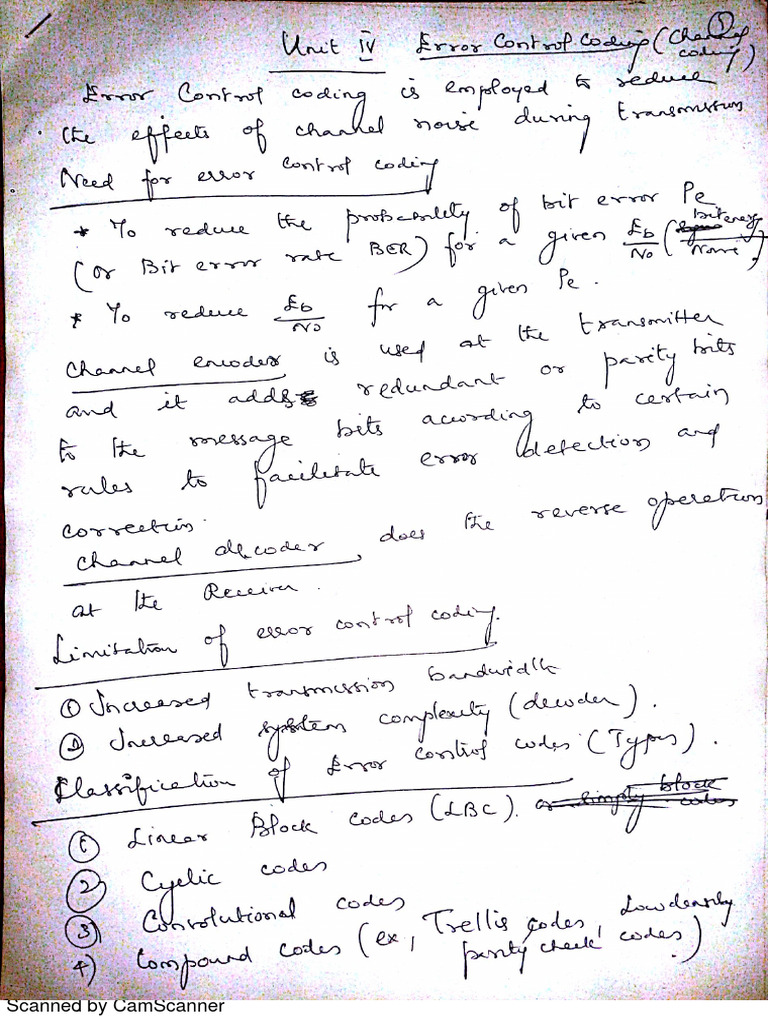 1
Unit IV Error Control Coding (Channel coding)
Error Control coding is employed to reduce
the effects of channel noise during transmission
Need for error control coding
* To reduce the probability of bit error Pe
(or Bit error rate BER) for a given Eb/No (bit energy/Noise)
* To reduce Eb/No for a given Pe.
Channel encoder is used at the transmitter
and it adds redundant or parity bits
to the message bits according to certain
rules to facilitate error detection and
correction.
Channel decoder, does the reverse operation
at the Receiver.
Limitation of error control coding.
① Increased transmission bandwidth
② Increased system complexity (decoder).
Classification of Error control codes (Types).
① Linear Block codes (LBC). or simply block codes
② Cyclic codes
③ Convolutional codes
4) Compound codes (ex, Trellis codes, Low density parity check codes)
Scanned by CamScanner